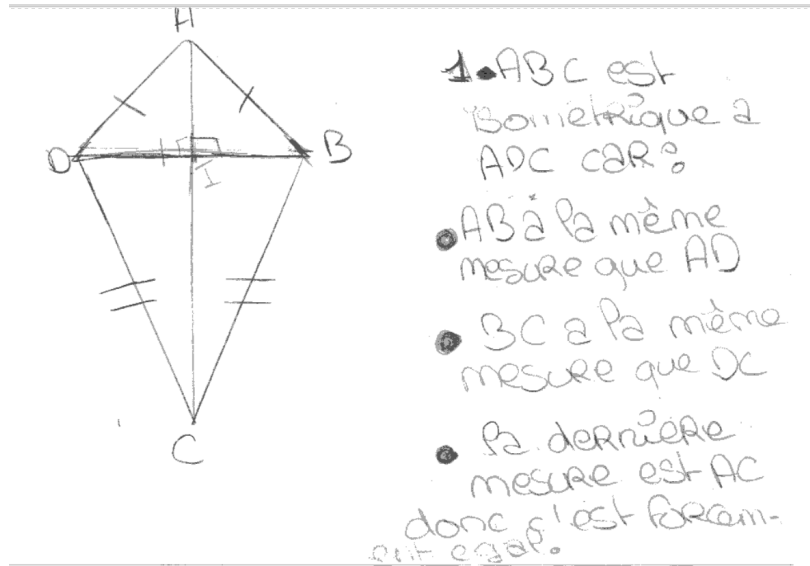 A
D
B
I
C
1. ABC est
isométrique a
ADC car:
• AB à la même
mesure que AD
• BC a la même
mesure que DC
• la dernière
mesure est AC
donc c'est forcem-
ent egal.